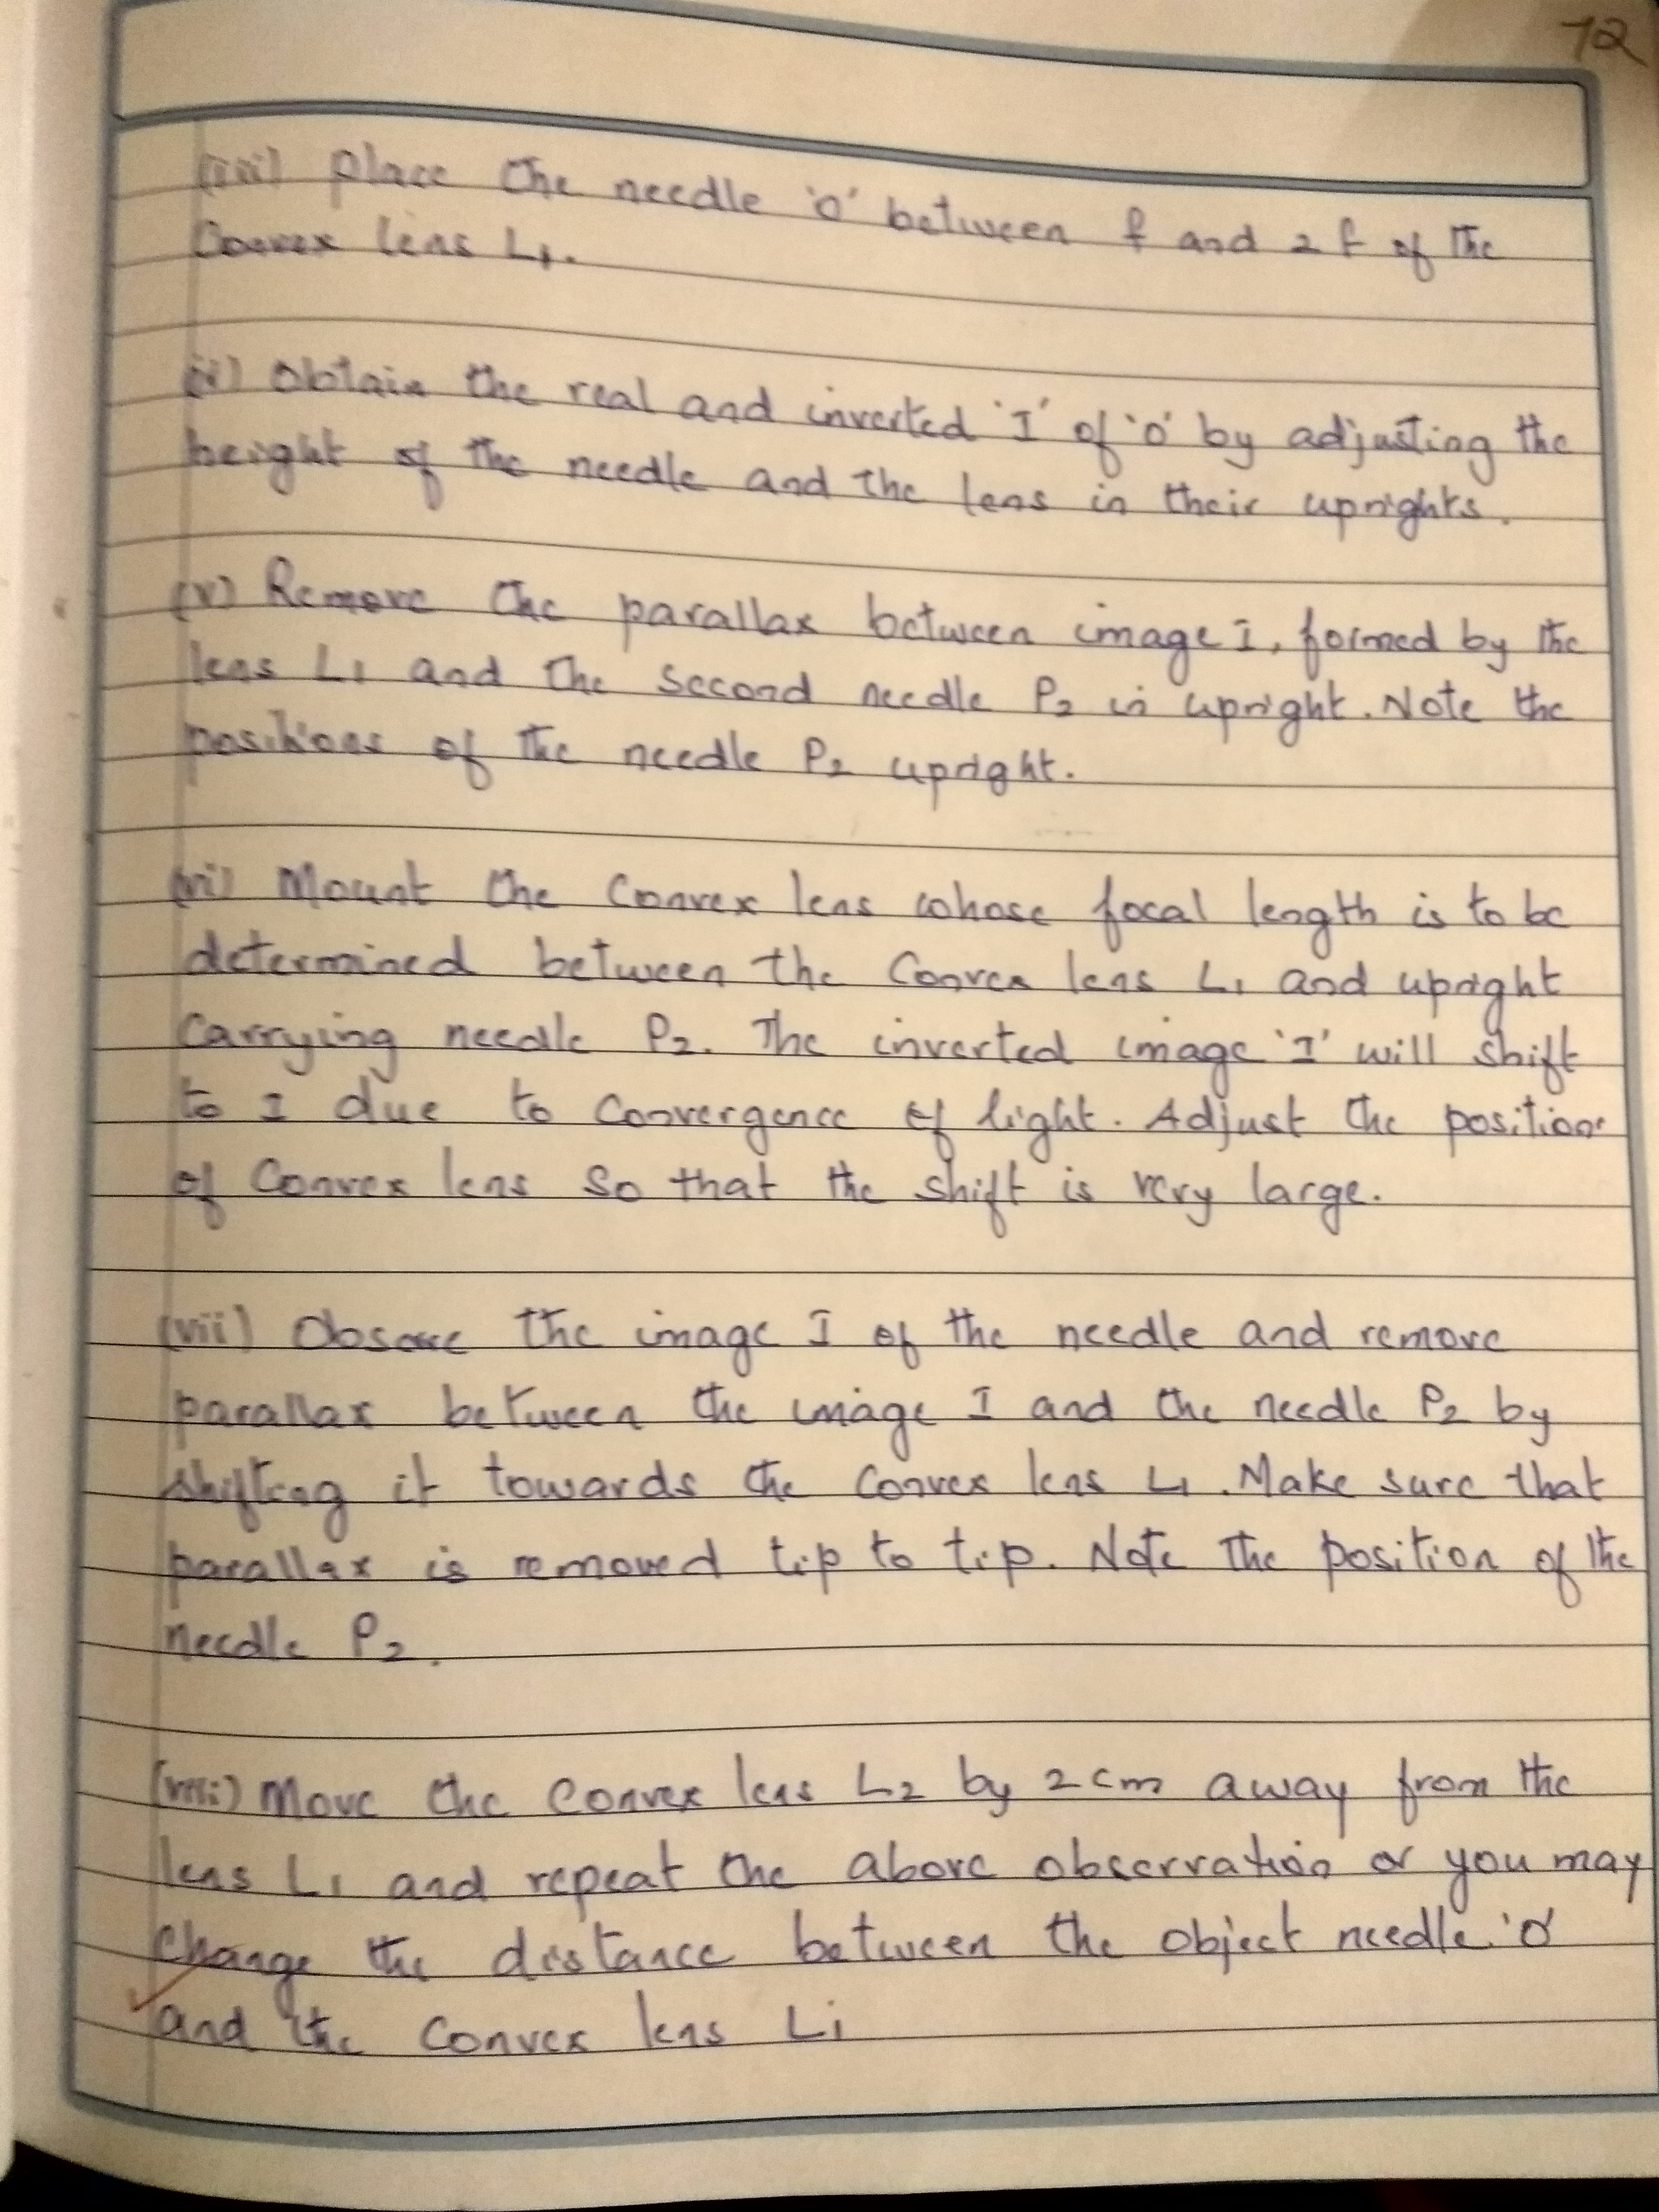 72
(iii) place the needle 'o' between f and 2f of the
Convex lens L1.
(iv) obtain the real and inverted 'I' of 'o' by adjusting the
height of the needle and the lens in their uprights.
(v) Remove the parallax between image I, formed by the
lens L1 and the second needle P2 in upright. Note the
positions of the needle P2 upright.
(vi) Mount the Convex lens whose focal length is to be
determined between the Convex lens L1 and upright
Carrying needle P2. The inverted image 'I' will shift
to I due to Convergence of light. Adjust the position
of Convex lens so that the shift is very large.
(vii) Obsove the image I of the needle and remove
parallax between the image I and the needle P2 by
shifting it towards the Convex lens L1. Make sure that
parallax is removed tip to tip. Note the position of the
needle P2.
(viii) Move the Convex lens L2 by 2 cm away from the
lens L1 and repeat the above observation or you may
change the distance between the object needle 'O'
and the Convex lens Li